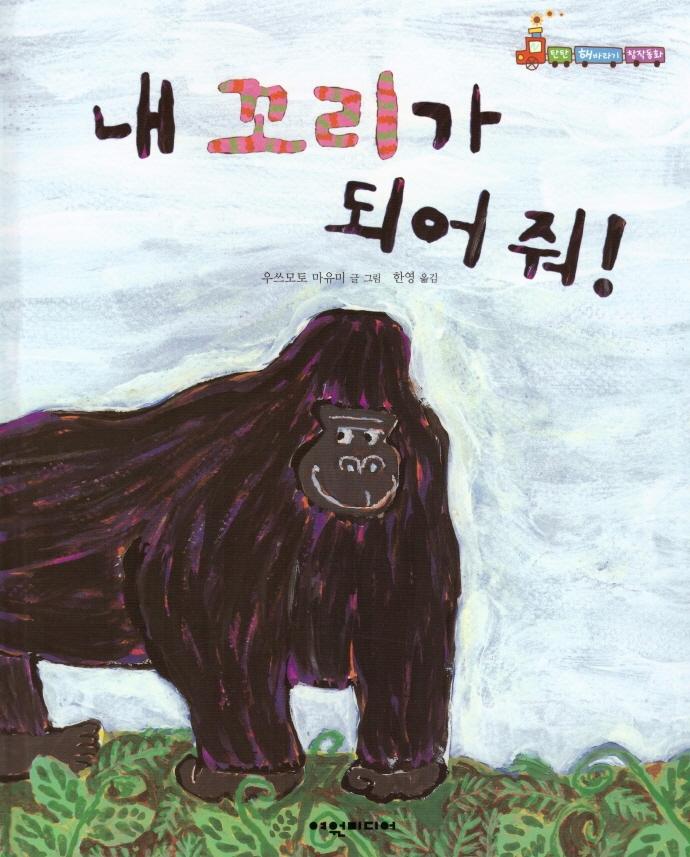 탄탄 해바라기 창작동화
내 꼬리가
되어 줘!
우쓰모토 마유미 글 그림 한영 옮김
여원미디어